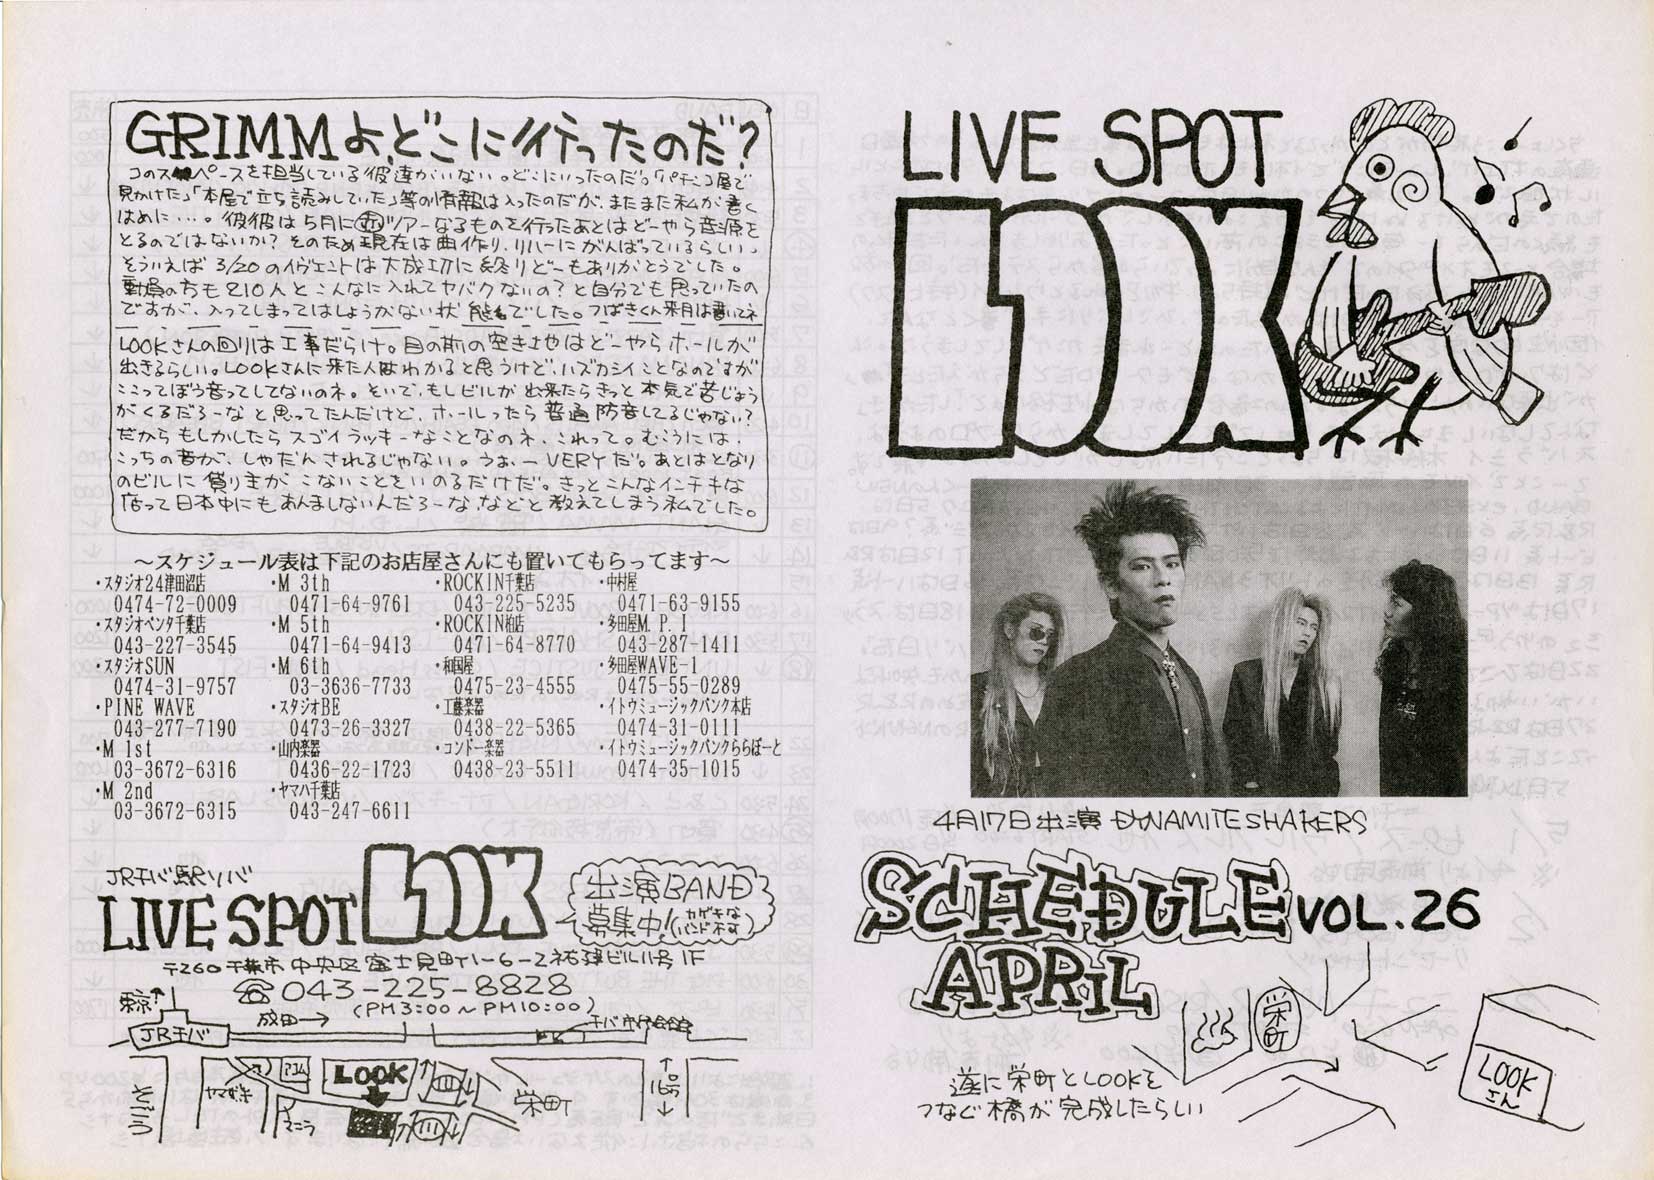 GRIMMよ、どこに行ったのだ?
このスペースを担当している彼達がいない。どこにいったのだ。「パチンコ屋で
見かけた」「本屋で立ち読みしていた」等の情報は入ったのだが、またまた私が書く
はめに…。彼彼は5月に ツアーなるものを行ったあとはどーやら音源を
とるのではないか?そのため現在は曲作り、リハーにがんばっているらしい。
そういえば3/20のイヴェントは大成功に終りどーもありがとうでした。
動員の方も210人とこんなに入れてヤバクないの?と自分でも思っていたの
ですが、入ってしまってはしょうがない状態でした。つばきくん来月は書いてネ
LOOKさんの回りは工事だらけ。目の前の空き地はどーやらホールが
出きるらしい。LOOKさんに来た人はわかると思うけど、ハズカシイことなのですが
ここってぼう音ってしてないのネ。そいで、もしビルが出来たらきっと本気で苦じょう
がくるだろーなと思ってたんだけど、ホールったら普通防音してるじゃない?
だからもしかしたらスゴイラッキーなことなのネ、これって。むこうには、
こっちの音が、しゃだんされるじゃない。うまーVERYだ。あとはとなり
のビルに貸りまがこないことをいのるだけだ。きっとこんなインチキな
店って日本中にもあんましないんだろーな、などと教えてしまう私でした。
〜スケジュール表は下記のお店屋さんにも置いてもらってます〜
・スタジオ24津田沼店 ・M 3th ・ROCKIN千葉店 ・中村屋
0474-72-0009 0471-64-9761 043-225-5235 0471-63-9155
・スタジオペンタ千葉店 ・M 5th ・ROCKIN柏店 ・多田屋M.P.I
043-227-3545 0471-64-9413 0471-64-8770 043-287-1411
・スタジオSUN ・M 6th ・和国屋 ・多田屋WAVE-1
0474-31-9757 03-3636-7733 0475-23-4555 0475-55-0289
・PINE WAVE ・スタジオBE ・工藤楽器 ・イトウミュージックバンク本店
043-277-7190 0473-26-3327 0438-22-5365 0474-31-0111
・M 1st ・山内楽器 ・コンドー楽器 ・イトウミュージックバンクららぽーと
03-3672-6316 0436-22-1723 0438-23-5511 0474-35-1015
・M 2nd ・ヤマハ千葉店
03-3672-6315 043-247-6611
JRチバ駅ソバ
LIVE SPOT LOOK
出演BAND
募集中!(カゲキなバンド不可)
〒260 千葉市中央区富士見町1-6-2 祐弾ビル11号1F
☎043-225-8828
(PM3:00〜PM10:00)
東京↑
JRチバ
成田→
LOOK
栄町
16号
LIVE SPOT
LOOK
4月17日出演 DYNAMITE SHAKERS
SCHEDULE VOL.26
APRIL
栄町
LOOKさん
遂に栄町とLOOKを
つなぐ橋が完成したらしい